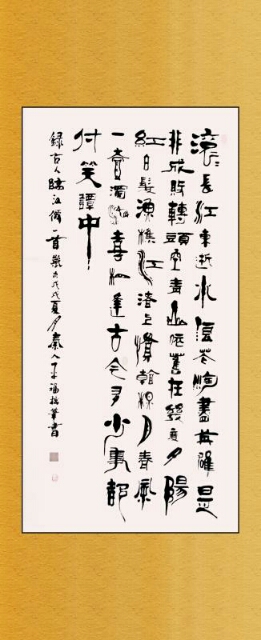 滚滚長江東逝水浪花淘盡英雄是
非成敗轉頭空青山依舊在幾度夕陽
紅白髮漁樵江渚上慣看秋月春風
一壺濁酒喜相逢古今多少事都
付笑譚中
録古人臨江仙一首戊戌夏秦人書